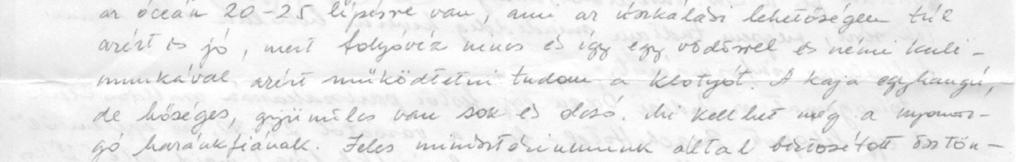 az óceán 20-25 lépésre van, ami az úszkálási lehetőségen túl
azért is jó, mert folyóvíz nincs és így egy vödörrel és némi kuli-
munkával azért működtetni tudom a klotyót. A kaja egyhangú,
de bőséges, gyümölcs van sok és olcsó. Mi kellhet még a nyomor-
gó hazánkfiának. Jeles minisztériumunk által biztosított ösztön-